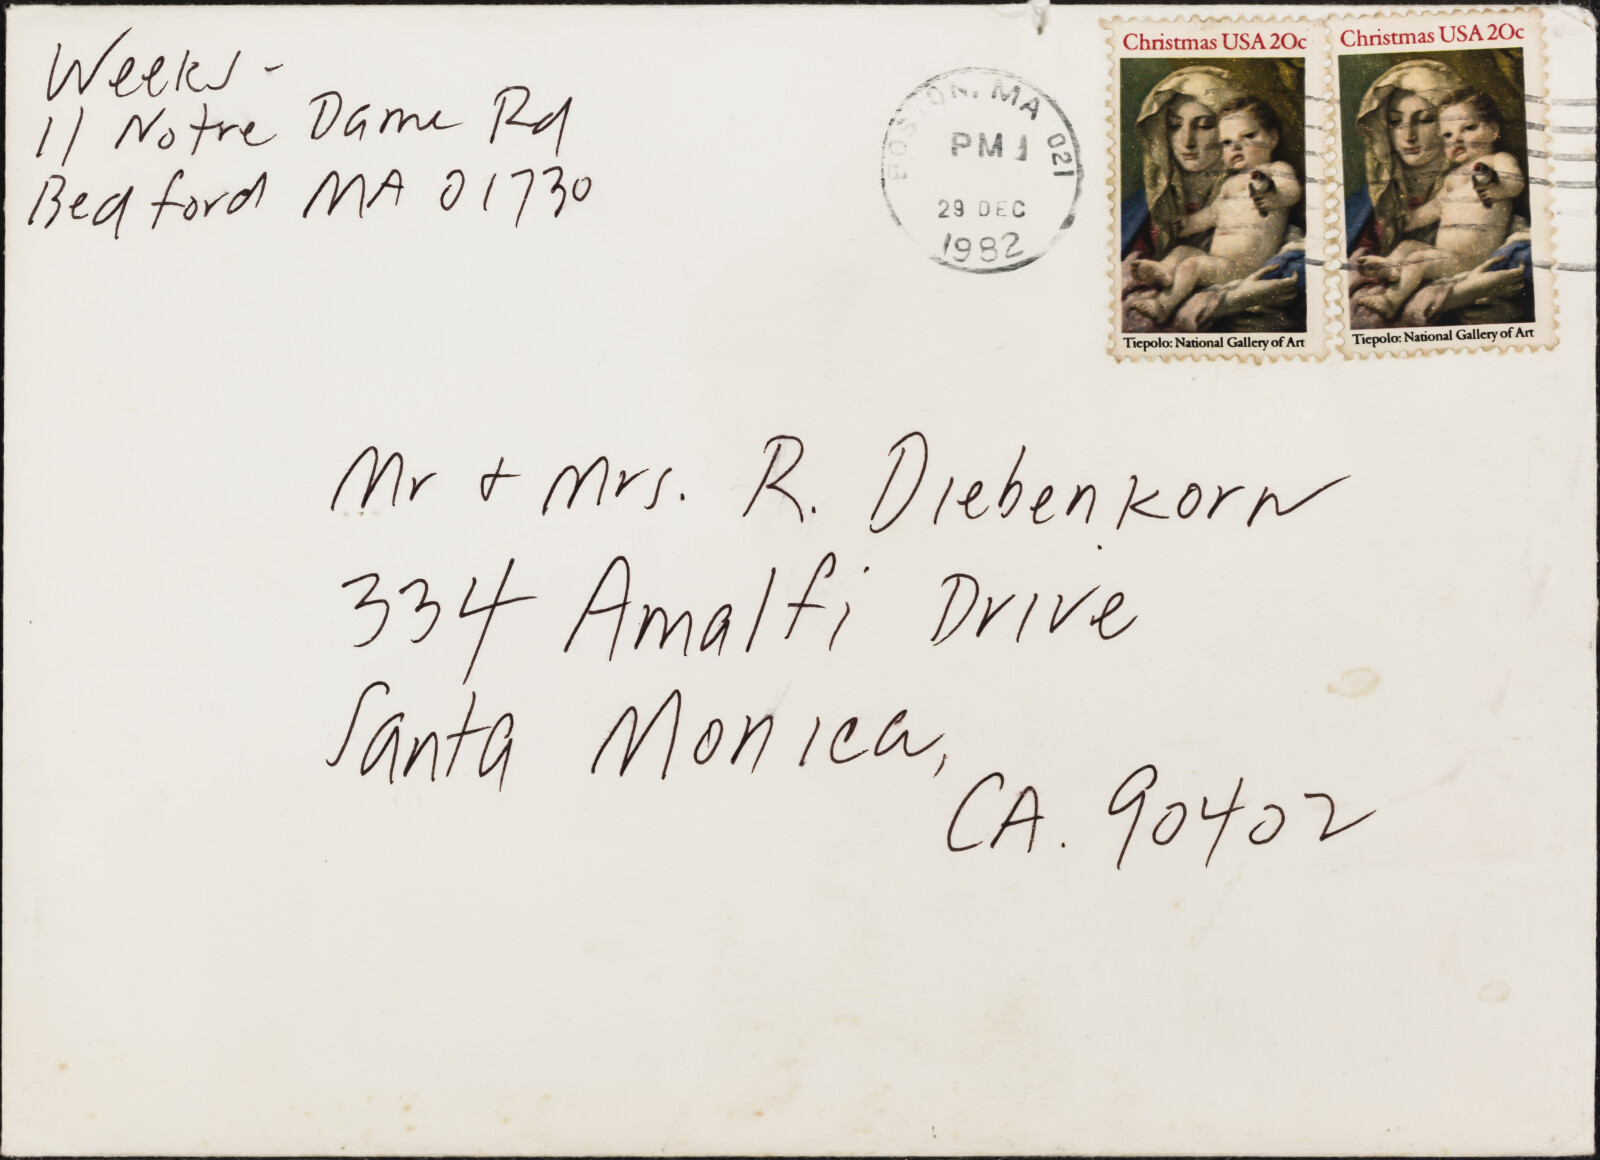 Weeks -
11 Notre Dame Rd
Bedford MA 01730
BOSTON, MA 021
PM 1
29 DEC
1982
Christmas USA 20c
Tiepolo: National Gallery of Art
Christmas USA 20c
Tiepolo: National Gallery of Art
Mr + Mrs. R. Diebenkorn
334 Amalfi Drive
Santa Monica,
CA. 90402